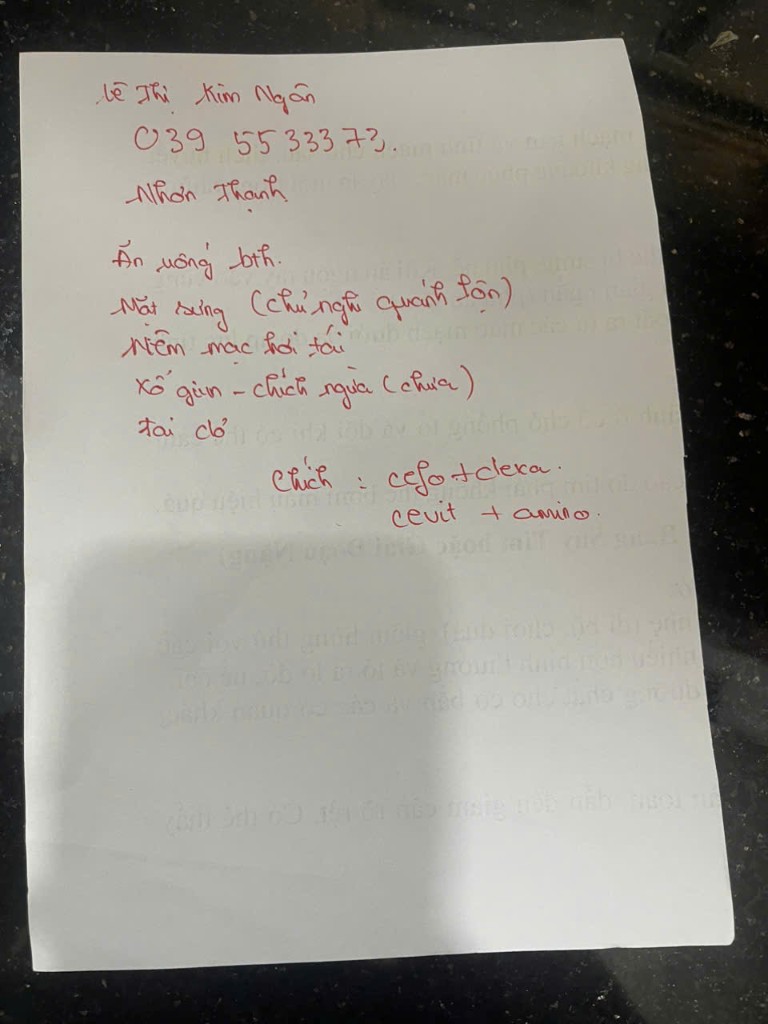 Lê Thị Kim Ngân
039 5533373.
Nhơn Thạnh
Ăn uống bth.
Mặt sưng (chủ nghi quánh lộn)
Niêm mạc hơi tái
Xổ giun - chích ngừa (chưa)
tai dơ
Chích : cefo + dexa.
cevit + amino.